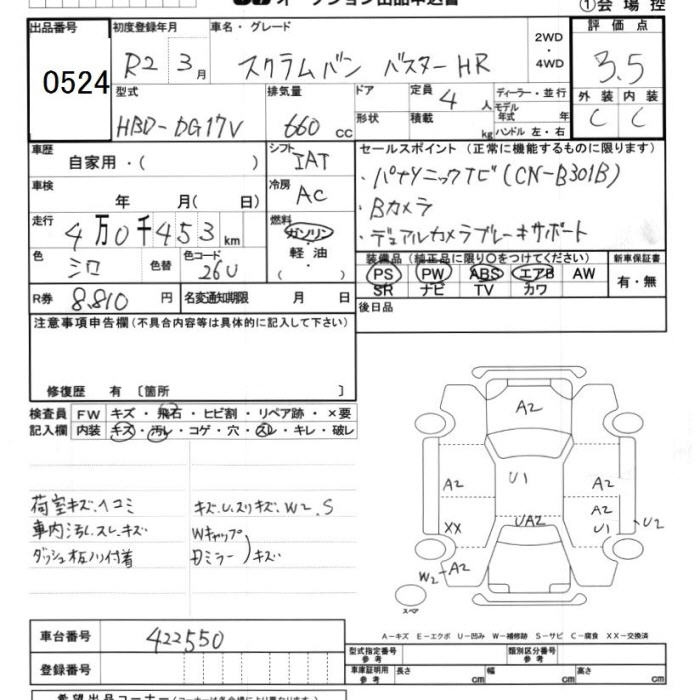 オークション出品申込書
①会場控
出品番号
0524
初度登録年月
R2 3月
車名・グレード
スクラムバン バスターHR
2WD
・
4WD
評価点
3.5
外装 内装
C C
型式
HBD-DG17V
排気量
660 cc
ドア
形状
定員
4 人
積載
kg
ディーラー・並行
モデル年式 年
ハンドル 左・右
車歴
自家用・( )
シフト
IAT
車検
年 月( 日)
冷房
AC
走行
4万0千453km
燃料
ガソリン
・
軽油
・
( )
色
シロ
色替
色コード
26U
R券
8.810 円
名変通知期限 月 日
セールスポイント (正常に機能するものに限ります)
・パナソニックTビ(CN-B301B)
・Bカメラ
・デュアルカメラブレーキサポート
装備品(純正品に限り○をつけてください)
PS PW ABS エアB AW
SR ナビ TV カワ
新車保証書
有・無
後日品
注意事項申告欄(不具合内容等は具体的に記入して下さい)
修復歴 有〔箇所 〕
検査員記入欄
FW キズ・飛石・ヒビ割・リペア跡・×要
内装 キズ・汚レ・コゲ・穴・スレ・キレ・破レ
荷室キズ.ヘコミ
車内汚レ.スレ.キズ
ダッシュ板ノリ付着
キズ.U.スリキズ.W2.S
Wキャップ
Dミラー キズ
A2
U1
A2
A2
A2
XX
UA2
U1
U2
W2-A2
スペア
A-キズ E-エクボ U-凹み W-補修跡 S-サビ C-腐食 XX-交換済
車台番号
422550
登録番号
型式指定番号
参考
類別区分番号
参考
車庫証明用
参考
長さ cm
幅 cm
高さ cm
希望出品コーナー